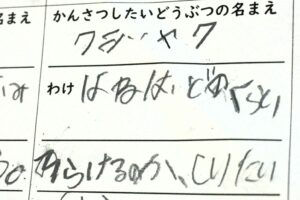 名まえ かんさつしたいどうぶつの名まえ
クジャク
わけ はねは、どのくらい
ひらけるのか、しりたい